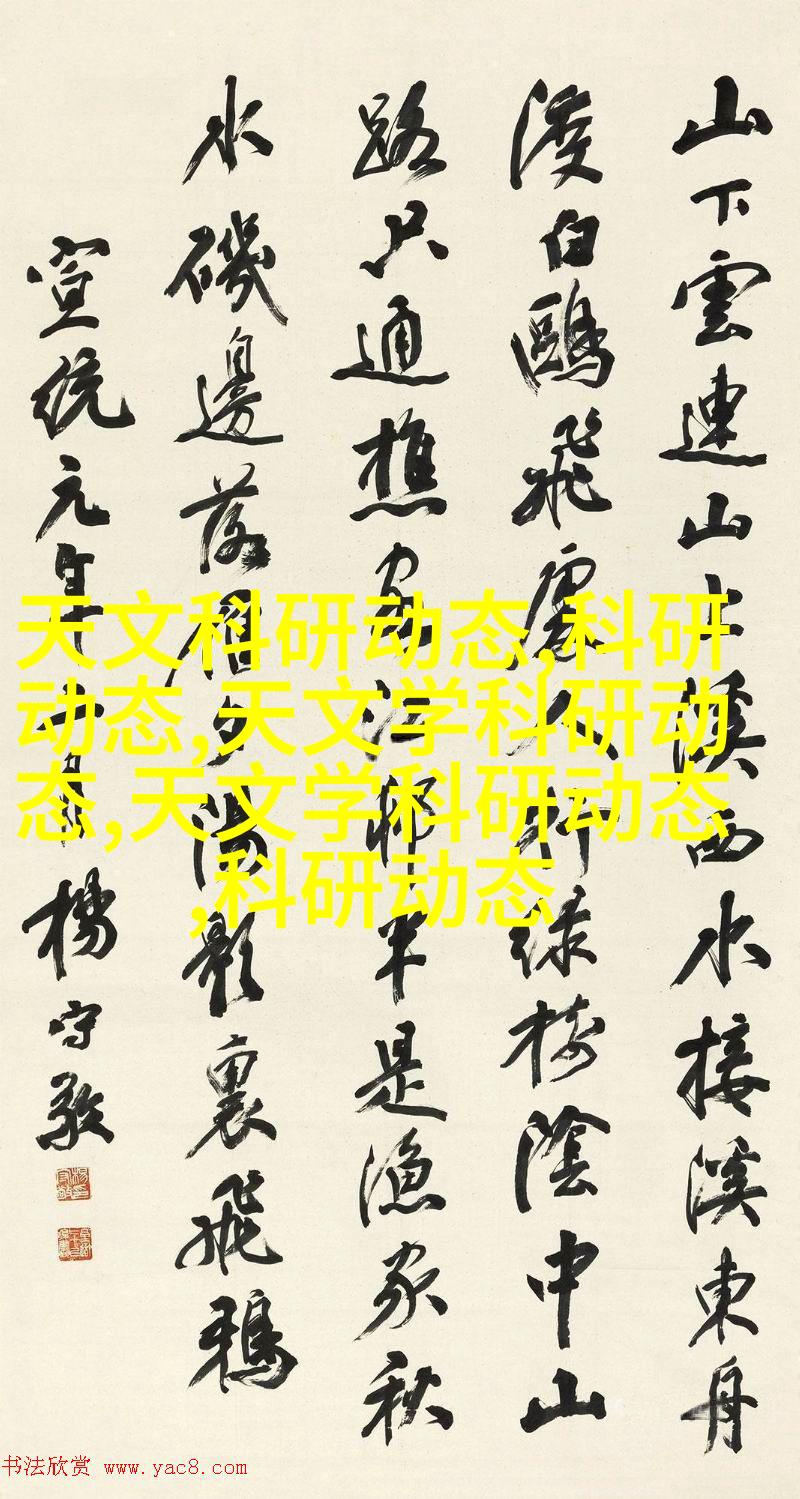 山下雲連山上溪西水接溪東舟
渡白鷗飛處人行綠樹陰中山
路只通樵客江邨半是漁家秋
水磯邊落雁夕陽影裏飛鴉
宣統元年十 楊守敬
天文科研动态,科研
动态,天文学科研动
态,天文学科研动态
,科研动态
书法欣赏 www.yac8.com